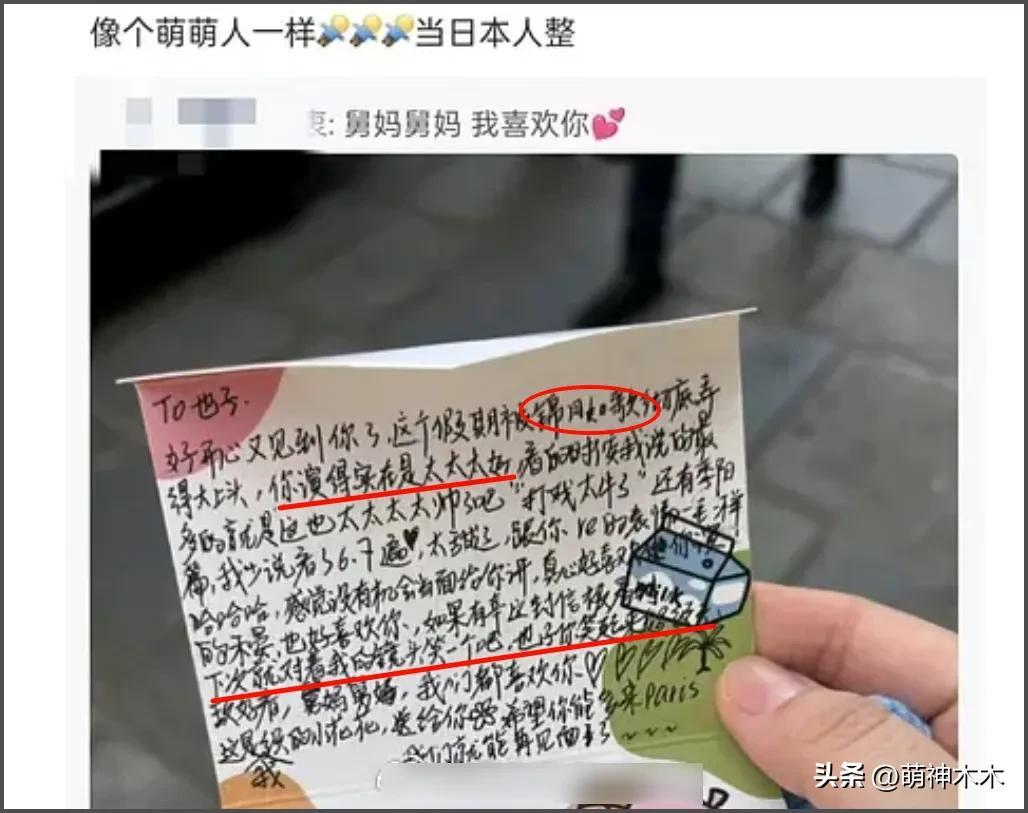 像个萌萌人一样🪇🪇🪇当日本人整
衷: 舅妈舅妈 我喜欢你💕
TO 也子.
好开心又见到你了,这个假期被锦月如歌彻底弄
得太上头,你演得实在是太太太好,看的时候我说的最
多的就是这也太太太太帅了吧""打戏太牛了"还有季阳
篇,我少说看了6.7遍♥太
哈哈哈,感觉没有机会当面给你讲,真心好喜欢
的禾晏,也好喜欢你,如果有幸这封信被看
下次就对着我的镜头笑一个吧,也子你笑起来
致好看,舅妈舅妈,我们都喜欢你♡♡♡♡
这是我的小花花,送给你 希望你能多来paris
我 我们就能再见面了~~~
头条 @萌神木木